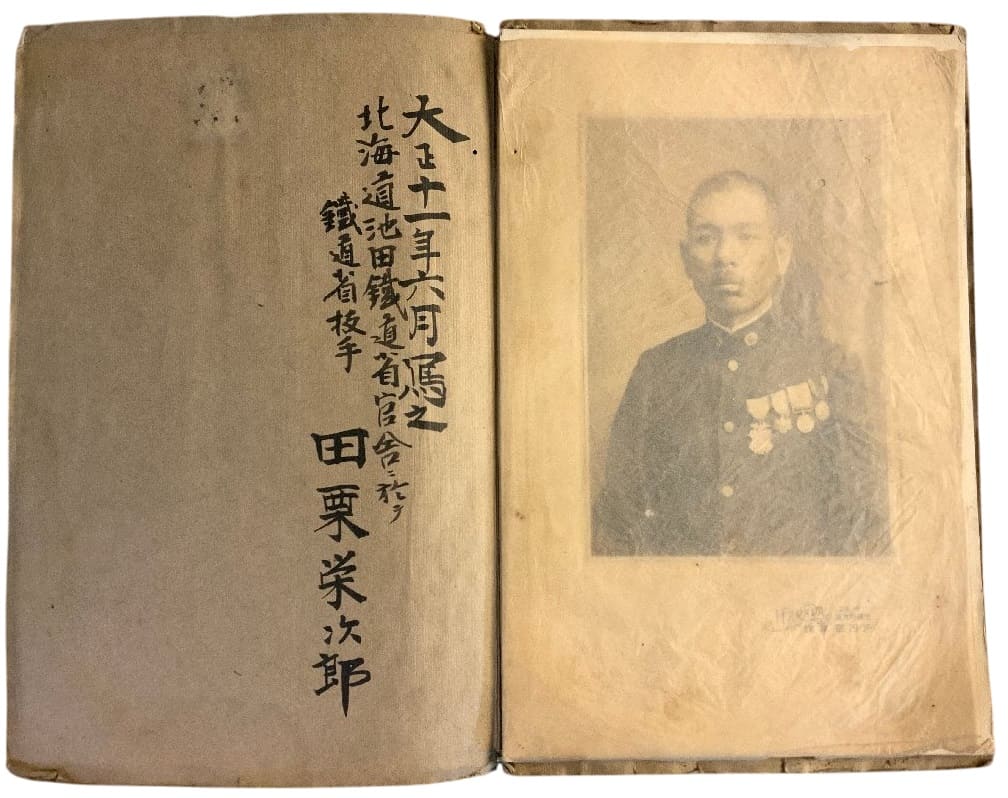 大正十一年六月写之
北海道池田鐵道省官舎ニ於テ
鐵道省技手
田栗栄次郎